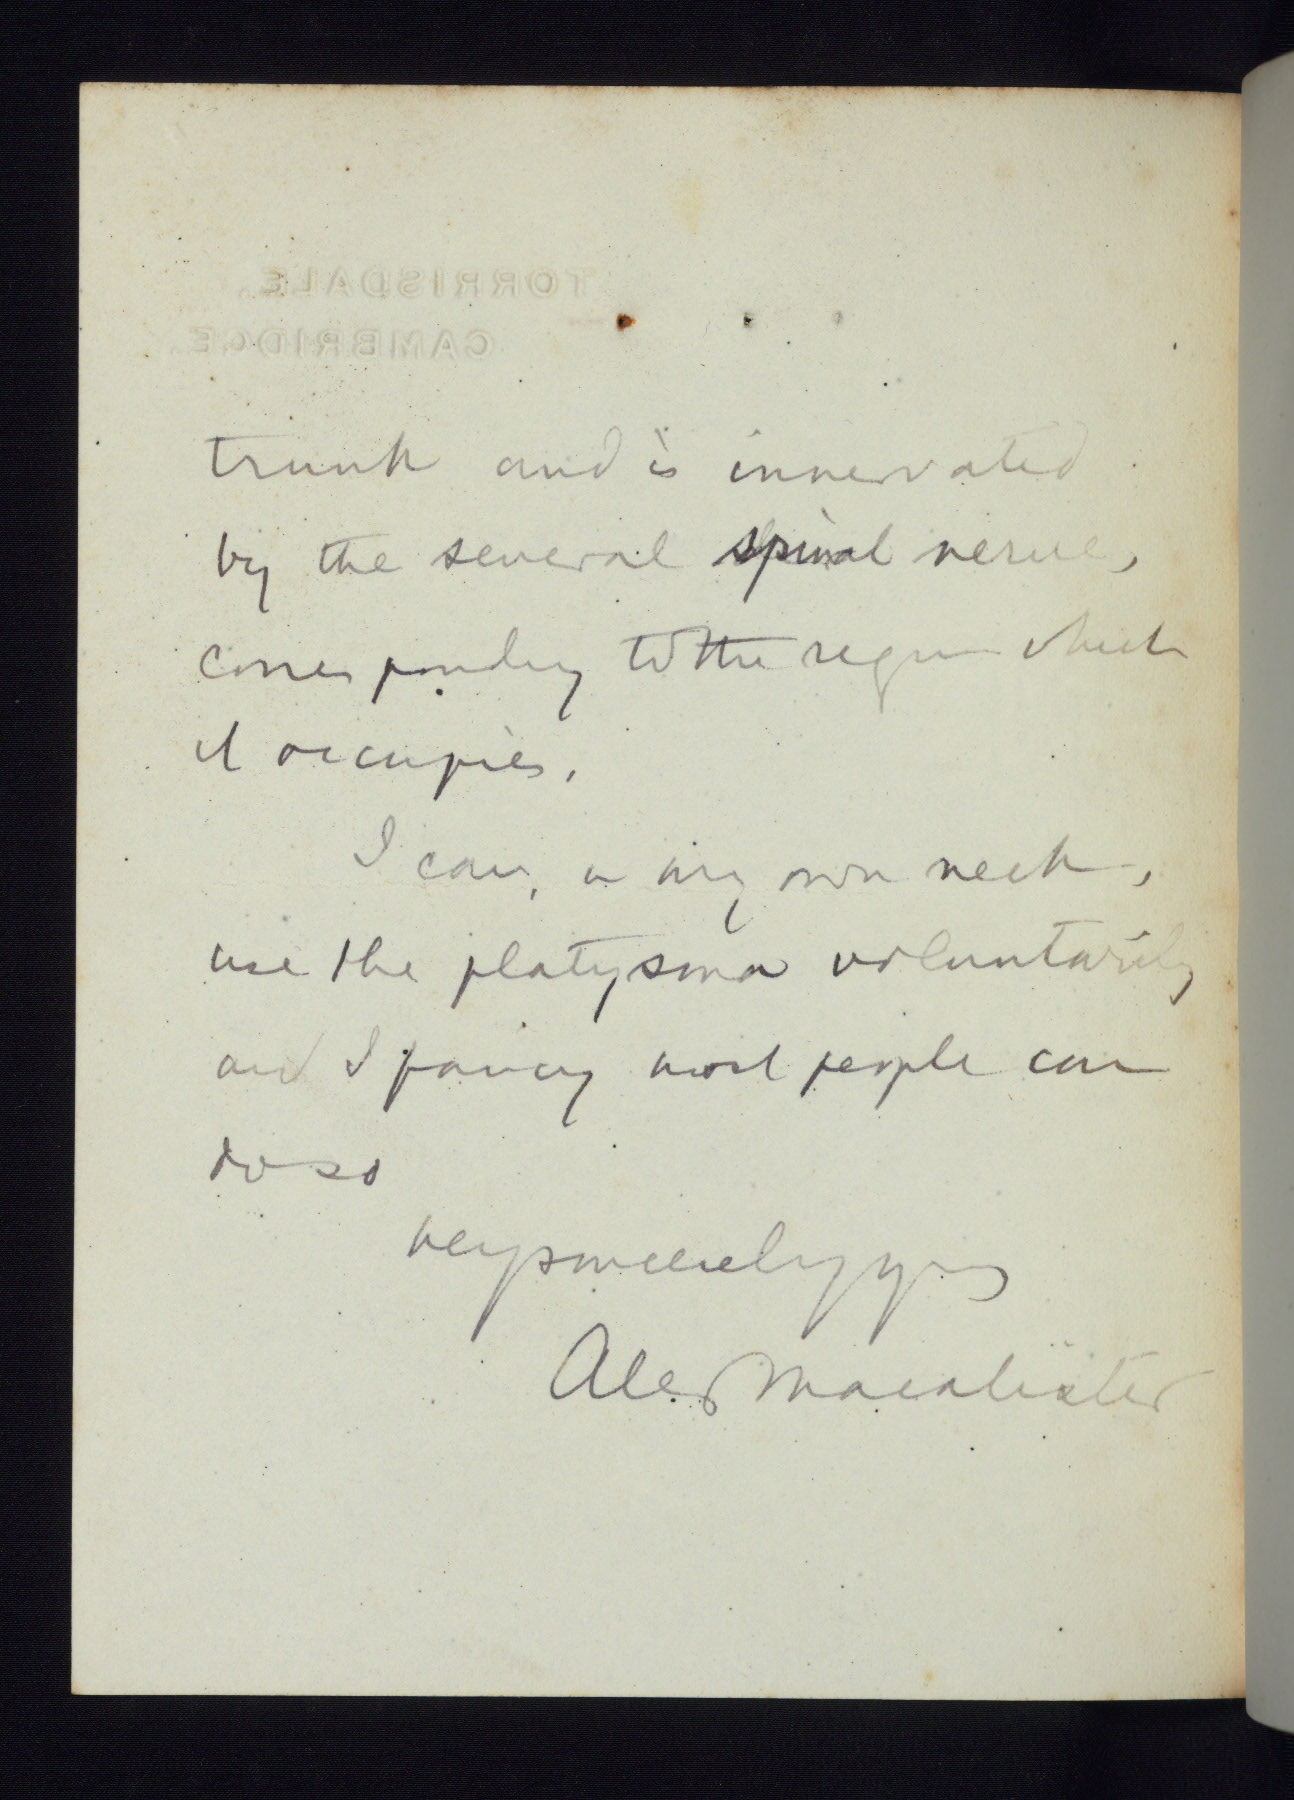 TORRISDALE,
CAMBRIDGE.
trunk and is innervated
by the several spinal nerves,
corresponding to the region which
it occupies.
I can, in my own neck,
use the platysma voluntarily
and I fancy most people can
do so
very sincerely yours
Alex Macalister